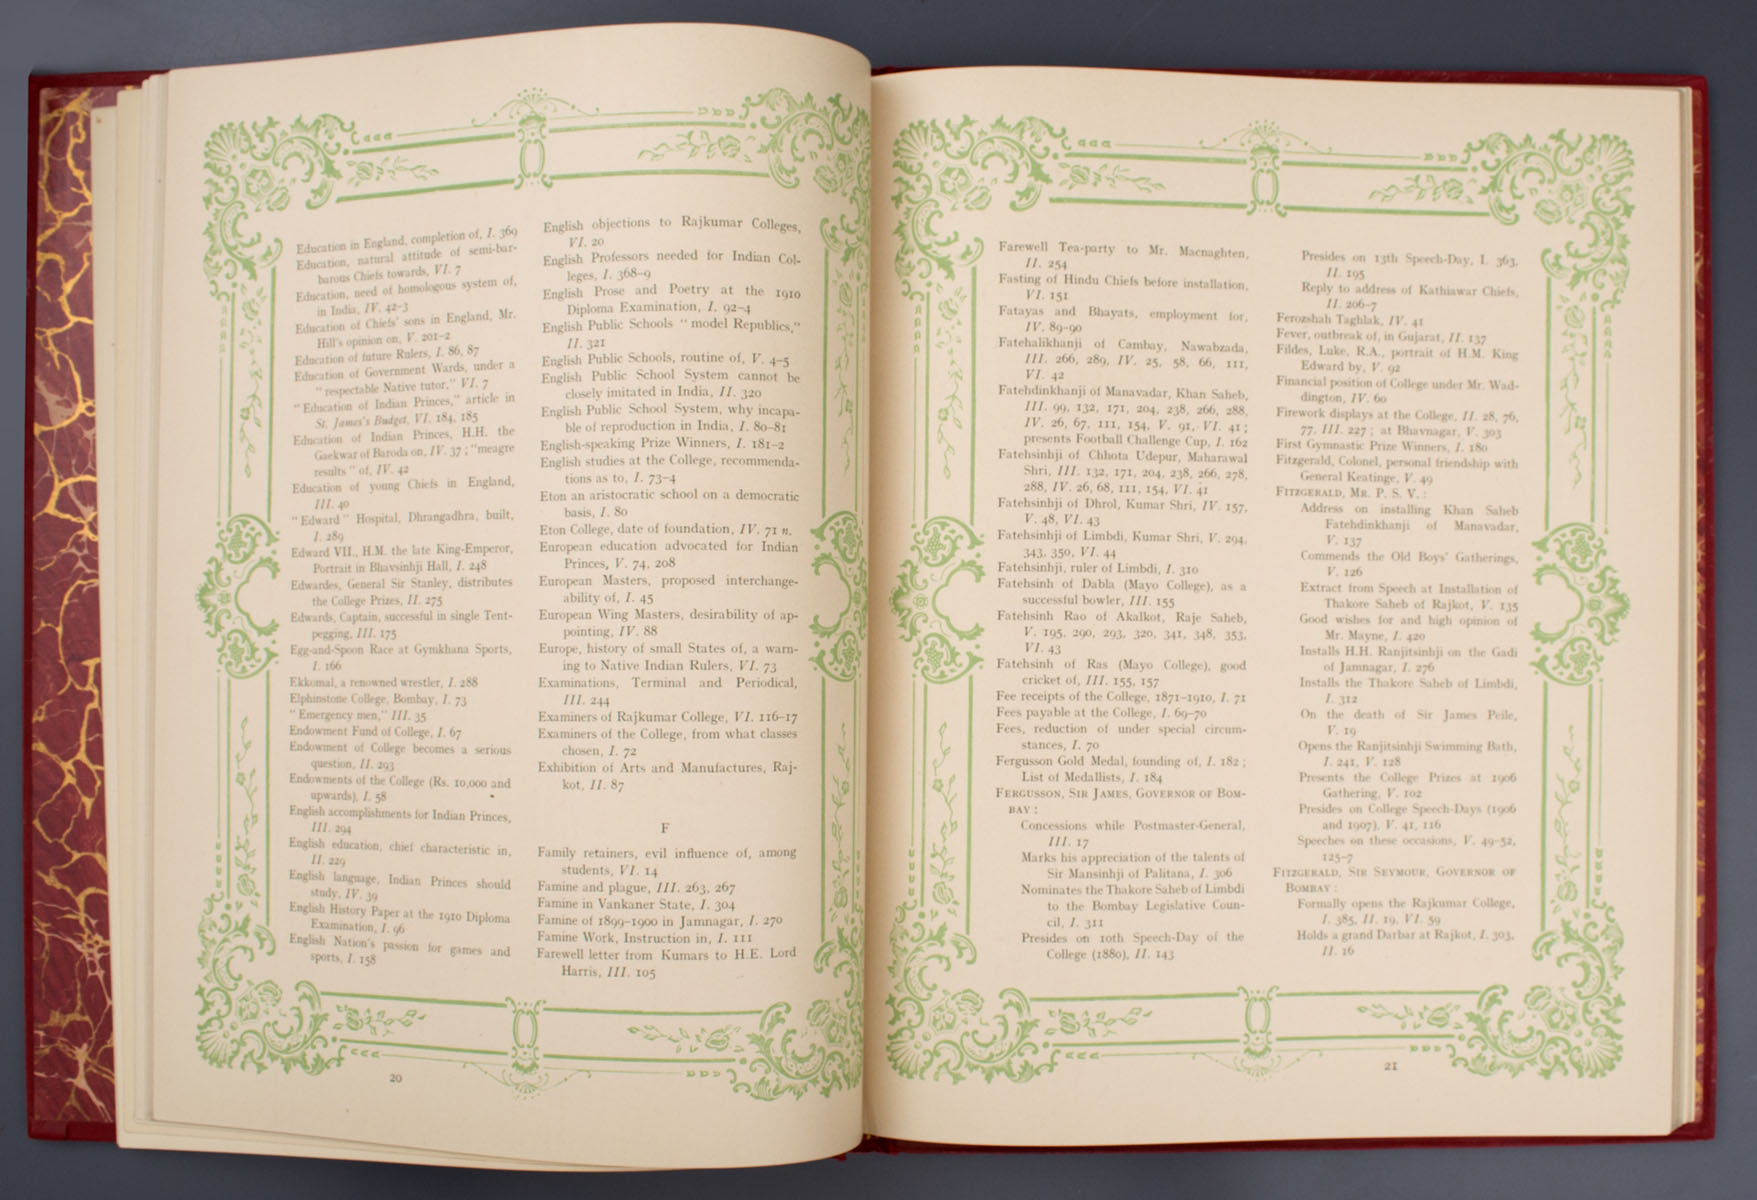 Education in England, completion of, I. 369
Education, natural attitude of semi-bar-
barous Chiefs towards, VI. 7
Education, need of homologous system of,
in India, IV. 42-3
Education of Chiefs' sons in England, Mr.
Hill's opinion on, V. 201-2
Education of future Rulers, I. 86, 87
Education of Government Wards, under a
"respectable Native tutor," VI. 7
"Education of Indian Princes," article in
St. James's Budget, VI. 184, 185
Education of Indian Princes, H.H. the
Gaekwar of Baroda on, IV. 37; "meagre
results" of, IV. 42
Education of young Chiefs in England,
III. 40
"Edward" Hospital, Dhrangadhra, built,
I. 289
Edward VII., H.M. the late King-Emperor,
Portrait in Bhavsinhji Hall, I. 248
Edwardes, General Sir Stanley, distributes
the College Prizes, II. 275
Edwards, Captain, successful in single Tent-
pegging, III. 175
Egg-and-Spoon Race at Gymkhana Sports,
I. 166
Ekkomal, a renowned wrestler, I. 288
Elphinstone College, Bombay, I. 73
"Emergency men," III. 35
Endowment Fund of College, I. 67
Endowment of College becomes a serious
question, II. 293
Endowments of the College (Rs. 10,000 and
upwards), I. 58
English accomplishments for Indian Princes,
III. 294
English education, chief characteristic in,
II. 229
English language, Indian Princes should
study, IV. 39
English History Paper at the 1910 Diploma
Examination, I. 96
English Nation's passion for games and
sports, I. 158
English objections to Rajkumar Colleges,
VI. 20
English Professors needed for Indian Col-
leges, I. 368-9
English Prose and Poetry at the 1910
Diploma Examination, I. 92-4
English Public Schools "model Republics,"
II. 321
English Public Schools, routine of, V. 4-5
English Public School System cannot be
closely imitated in India, II. 320
English Public School System, why incapa-
ble of reproduction in India, I. 80-81
English-speaking Prize Winners, I. 181-2
English studies at the College, recommenda-
tions as to, I. 73-4
Eton an aristocratic school on a democratic
basis, I. 80
Eton College, date of foundation, IV. 71 n.
European education advocated for Indian
Princes, V. 74, 208
European Masters, proposed interchange-
ability of, I. 45
European Wing Masters, desirability of ap-
pointing, IV. 88
Europe, history of small States of, a warn-
ing to Native Indian Rulers, VI. 73
Examinations, Terminal and Periodical,
III. 244
Examiners of Rajkumar College, VI. 116-17
Examiners of the College, from what classes
chosen, I. 72
Exhibition of Arts and Manufactures, Raj-
kot, II. 87
F
Family retainers, evil influence of, among
students, VI. 14
Famine and plague, III. 263, 267
Famine in Vankaner State, I. 304
Famine of 1899-1900 in Jamnagar, I. 270
Famine Work, Instruction in, I. 111
Farewell letter from Kumars to H.E. Lord
Harris, III. 105
20
Farewell Tea-party to Mr. Macnaghten,
II. 254
Fasting of Hindu Chiefs before installation,
VI. 151
Fatayas and Bhayats, employment for,
IV. 89-90
Fatehalikhanji of Cambay, Nawabzada,
III. 266, 289, IV. 25, 58, 66, 111,
VI. 42
Fatehdinkhanji of Manavadar, Khan Saheb,
III. 99, 132, 171, 204, 238, 266, 288,
IV. 26, 67, 111, 154, V. 91, VI. 41;
presents Football Challenge Cup, I. 162
Fatehsinhji of Chhota Udepur, Maharawal
Shri, III. 132, 171, 204, 238, 266, 278,
288, IV. 26, 68, 111, 154, VI. 41
Fatehsinhji of Dhrol, Kumar Shri, IV. 157,
V. 48, VI. 43
Fatehsinhji of Limbdi, Kumar Shri, V. 294,
343, 350, VI. 44
Fatehsinhji, ruler of Limbdi, I. 310
Fatehsinh of Dabla (Mayo College), as a
successful bowler, III. 155
Fatehsinh Rao of Akalkot, Raje Saheb,
V. 195, 290, 293, 320, 341, 348, 353,
VI. 43
Fatehsinh of Ras (Mayo College), good
cricket of, III. 155, 157
Fee receipts of the College, 1871-1910, I. 71
Fees payable at the College, I. 69-70
Fees, reduction of under special circum-
stances, I. 70
Fergusson Gold Medal, founding of, I. 182;
List of Medallists, I. 184
FERGUSSON, SIR JAMES, GOVERNOR OF BOM-
BAY:
Concessions while Postmaster-General,
III. 17
Marks his appreciation of the talents of
Sir Mansinhji of Palitana, I. 306
Nominates the Thakore Saheb of Limbdi
to the Bombay Legislative Coun-
cil, I. 311
Presides on 10th Speech-Day of the
College (1880), II. 143
Presides on 13th Speech-Day, I. 363,
II. 195
Reply to address of Kathiawar Chiefs,
II. 206-7
Ferozshah Taghlak, IV. 41
Fever, outbreak of, in Gujarat, II. 137
Fildes, Luke, R.A., portrait of H.M. King
Edward by, V. 92
Financial position of College under Mr. Wad-
dington, IV. 60
Firework displays at the College, II. 28, 76,
77, III. 227; at Bhavnagar, V. 303
First Gymnastic Prize Winners, I. 180
Fitzgerald, Colonel, personal friendship with
General Keatinge, V. 49
FITZGERALD, MR. P. S. V.:
Address on installing Khan Saheb
Fatehdinkhanji of Manavadar,
V. 137
Commends the Old Boys' Gatherings,
V. 126
Extract from Speech at Installation of
Thakore Saheb of Rajkot, V. 135
Good wishes for and high opinion of
Mr. Mayne, I. 420
Installs H.H. Ranjitsinhji on the Gadi
of Jamnagar, I. 276
Installs the Thakore Saheb of Limbdi,
I. 312
On the death of Sir James Peile,
V. 19
Opens the Ranjitsinhji Swimming Bath,
I. 241, V. 128
Presents the College Prizes at 1906
Gathering, V. 102
Presides on College Speech-Days (1906
and 1907), V. 41, 116
Speeches on these occasions, V. 49-52,
125-7
FITZGERALD, SIR SEYMOUR, GOVERNOR OF
BOMBAY:
Formally opens the Rajkumar College,
I. 385, II. 19, VI. 59
Holds a grand Darbar at Rajkot, I. 303,
II. 16
21